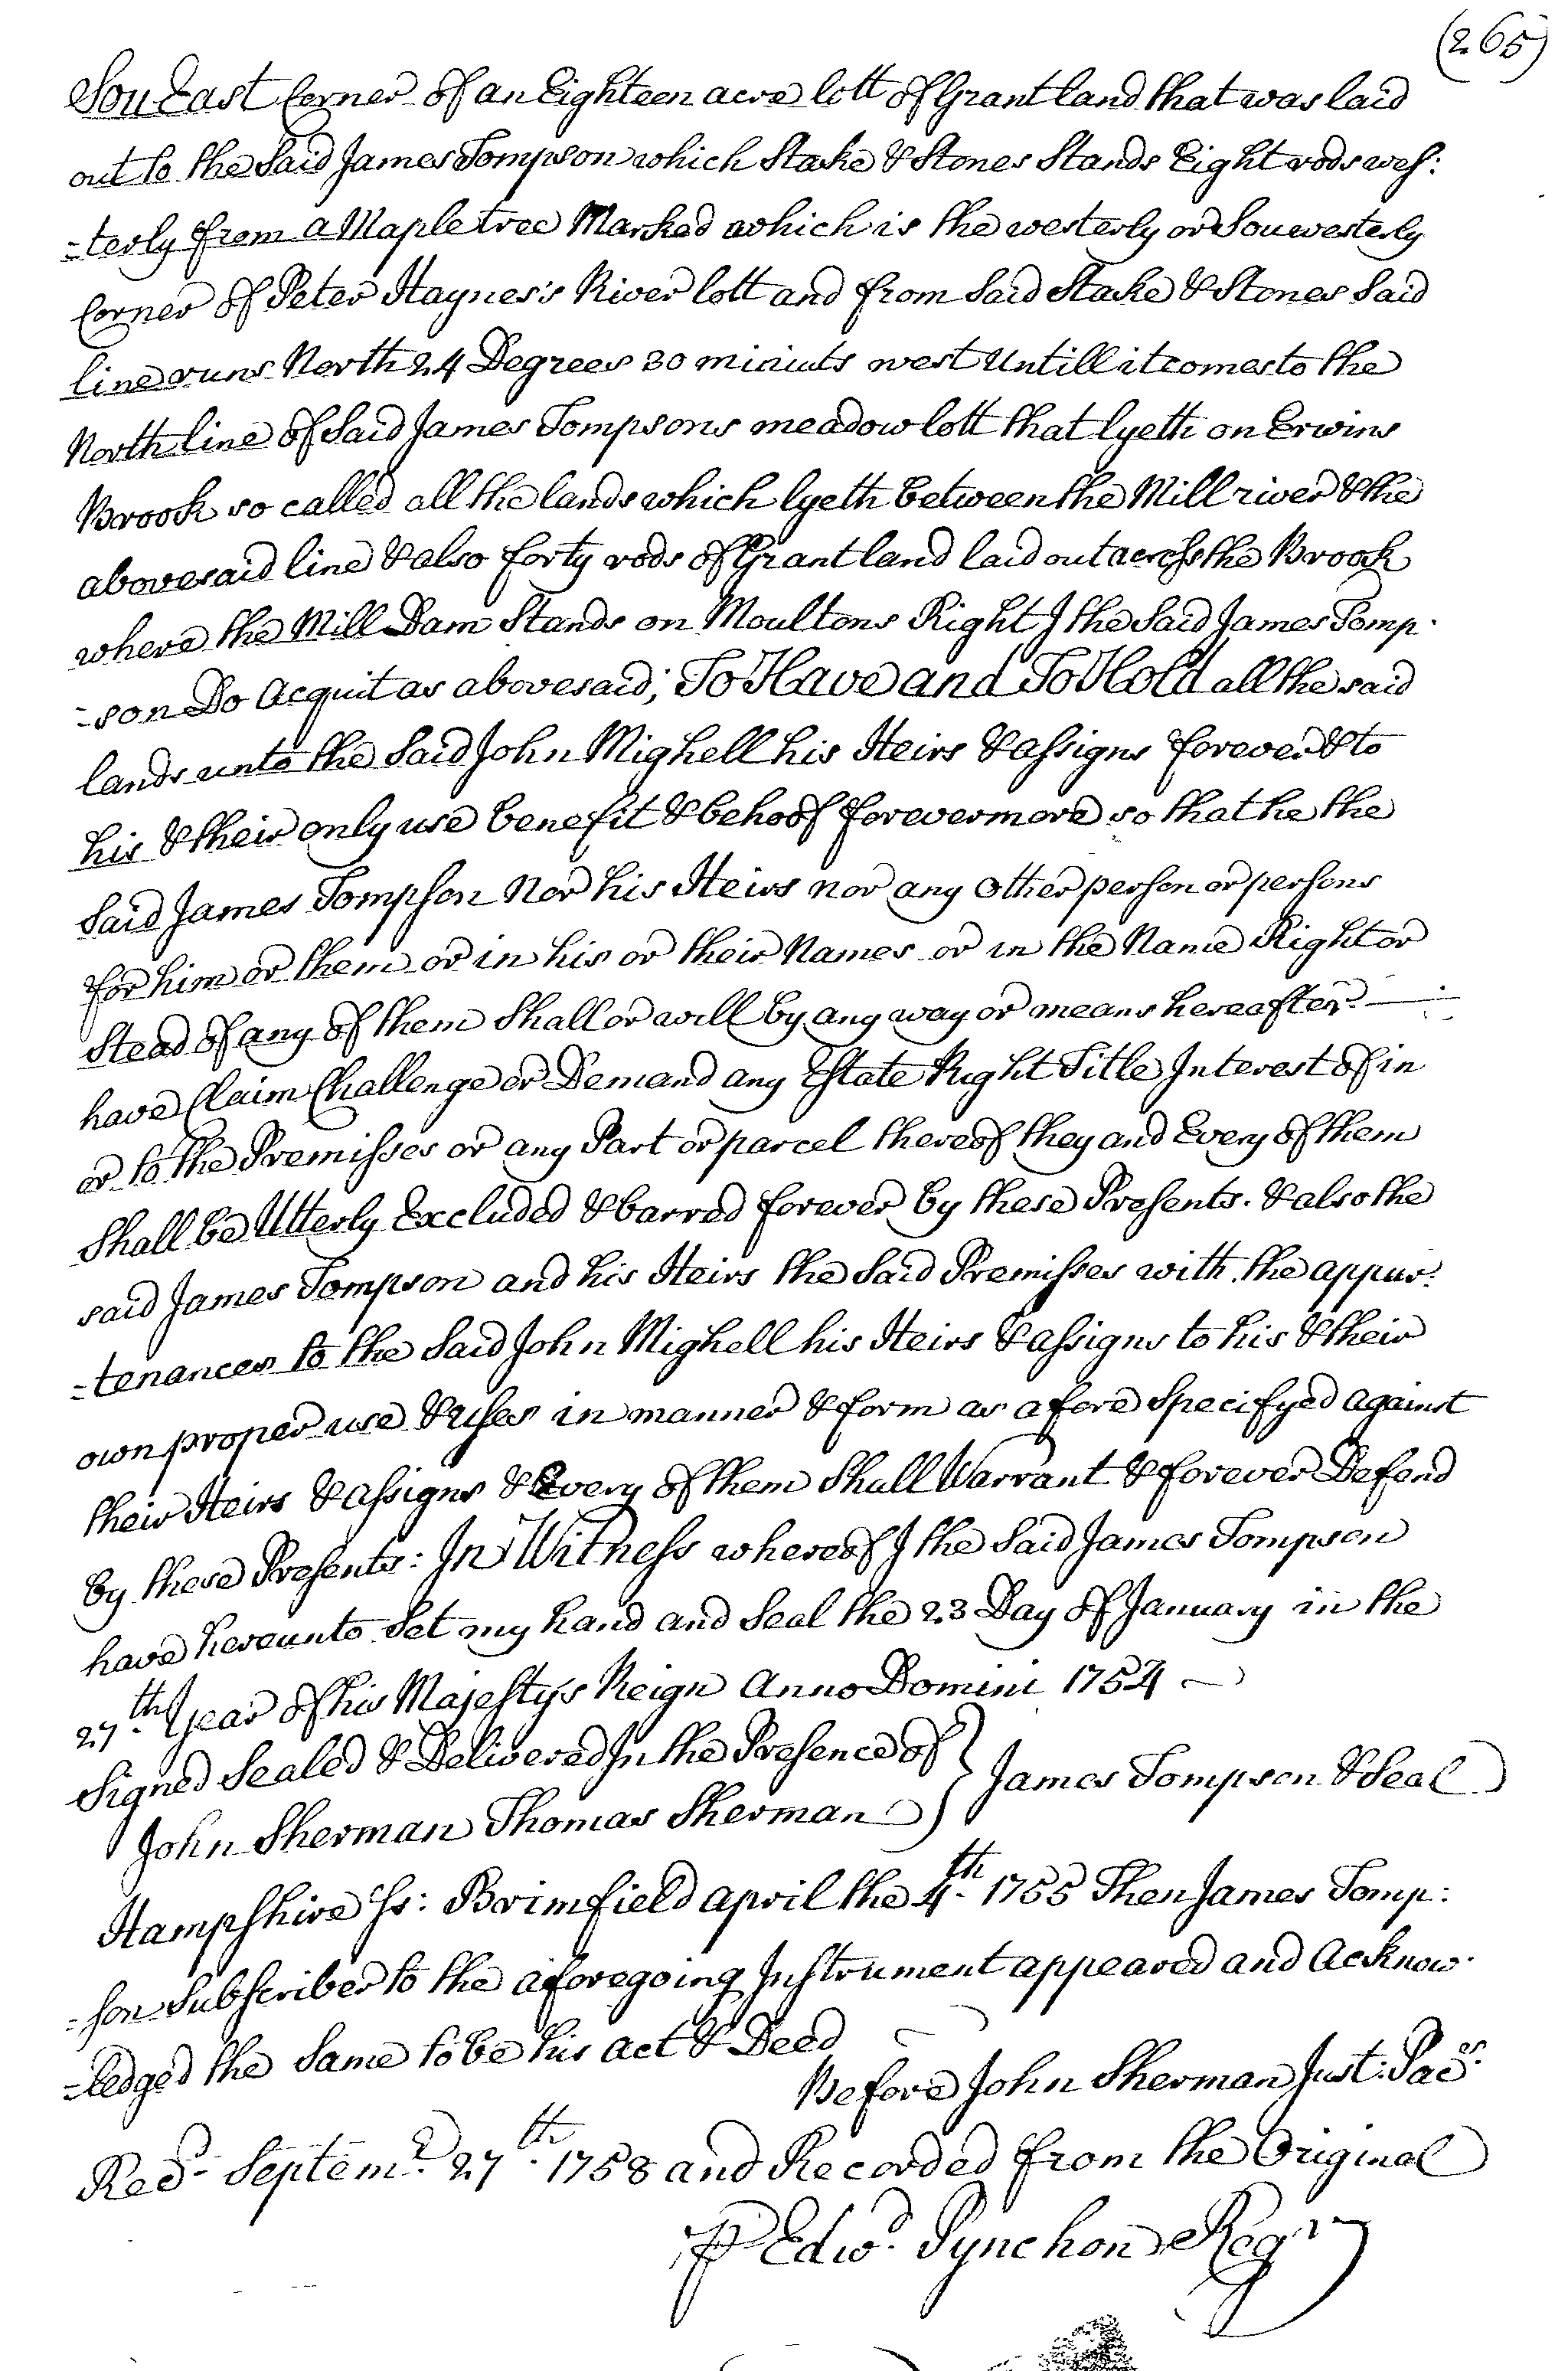 (265)
Sou East Corner of an Eighteen acre lott of Grant land that was laid
out to the Said James Tompson which Stake & Stones Stands Eight rods wes:
=terly from a Maple tree Marked which is the westerly or Souwesterly
Corner of Peter Haynes's River lott and from Said Stake & Stones Said
line runs North 24 Degrees 30 miniuts west Untill it comes to the
North line of Said James Tompsons meadow lott that lyeth on Erwins
Brook so called all the lands which lyeth between the Mill river & the
abovesaid line & also forty rods of Grant land laid out across the Brook
where the Mill Dam Stands on Moultons Right I the Said James Tomp-
=son Do Acquit as abovesaid; To Have and To Hold all the said
lands unto the Said John Mighell his Heirs & assigns forever & to
his & their only use benefit & behoof forevermore so that he the
Said James Tompson Nor his Heirs nor any other person or persons
for him or them or in his or their Names or in the Name Right or
Stead of any of them Shall or will by any way or means hereafter
have Claim Challenge or Demand any Estate Right Title Interest of in
or to the Premisses or any Part or parcel thereof they and Every of them
Shall be Utterly Excluded & barred forever by these Presents. & also the
said James Tompson and his Heirs the Said Premisses with the appur:
=tenances to the Said John Mighell his Heirs & assigns to his & their
own proper use & uses in manner & form as afore Specifyed against
their Heirs & assigns & Every of them Shall Warrant & forever Defend
by these Presents: In Witness whereof I the Said James Tompson
have hereunto Set my hand and Seal the 23 Day of January in the
27th Year of his Majestys Reign Anno Domini 1754
Signed Sealed & Delivered In the Presence of } James Tompson & Seal
John Sherman Thomas Sherman
Hampshire Ss: Brimfield april the 4th 1755 Then James Tomp:
=son Subscriber to the aforegoing Instrument appeared and Acknow-
=ledged the Same to be his act & Deed
Before John Sherman Just: Pacs
Recd Septemr 27th 1758 and Recorded from the Original
P Edwd Pynchon Regr